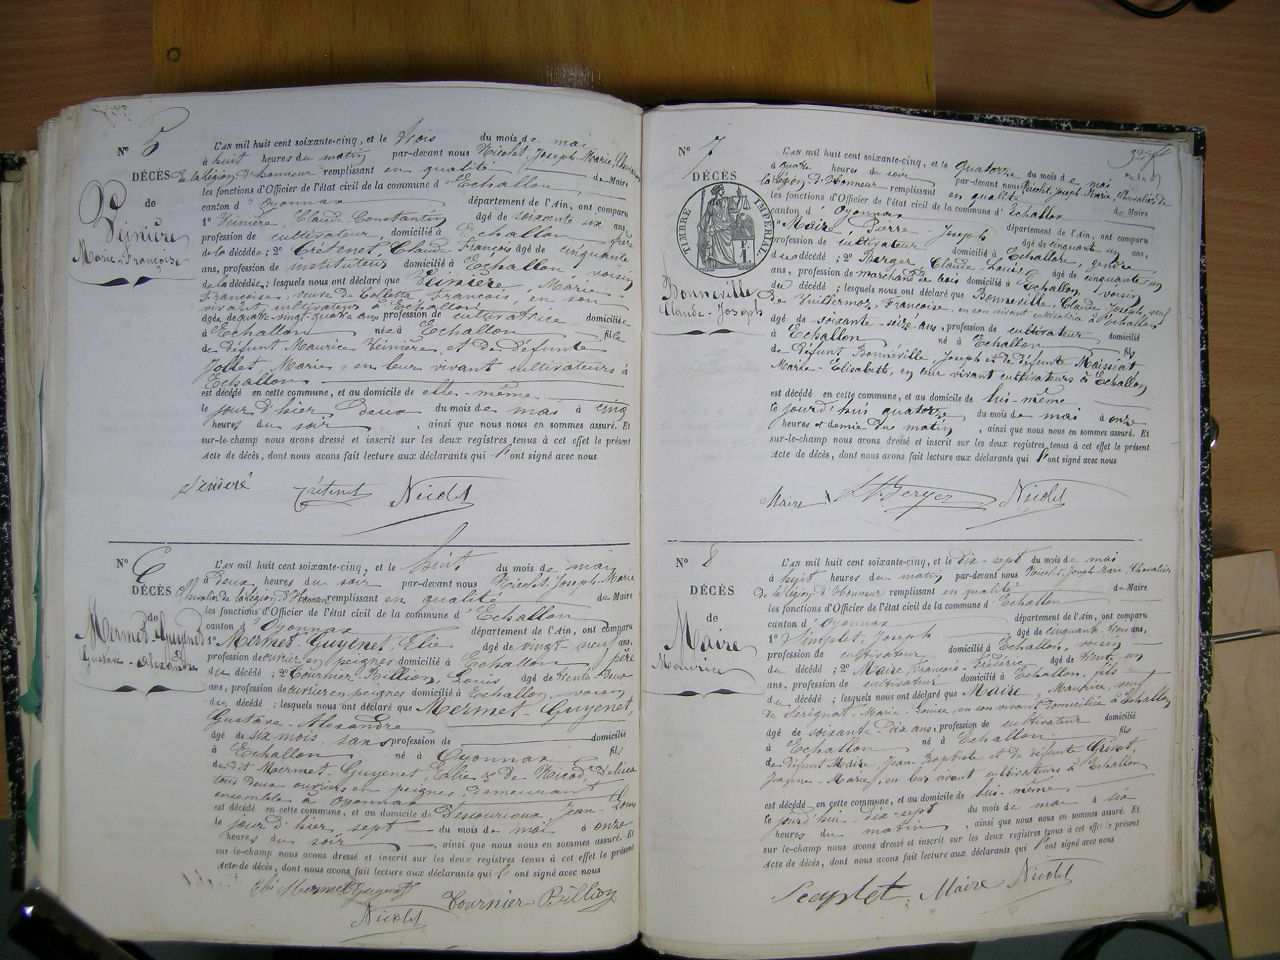 N° 5
DÉCÈS
de
Veinière
Marie-Françoise
L'AN mil huit cent soixante-cinq, et le trois du mois de mai
à huit heures du matin par-devant nous Nicolet, Joseph-Marie, Chevalier
de la légion d'honneur remplissant en qualité de Maire
les fonctions d'Officier de l'état civil de la commune d'Echallon
canton d'Oyonnax département de l'Ain, ont comparu
1° Veinière, Claude Constantin âgé de soixante six ans,
profession de cultivateur, domicilié à Echallon frère
de la décédée; 2° Crétenet, Claude François âgé de cinquante
ans, profession de instituteur domicilié à Echallon, voisin
de la décédée; lesquels nous ont déclaré que Veinière, Marie-
Françoise, veuve de Collette François, en son
vivant cultivateur à Echallon
âgée de quatre-vingt-quatre ans profession de cultivatrice domiciliée
à Echallon née à Echallon fille
de défunt Maurice Veinière, et de défunte
Jollet, Marie, en leur vivant cultivateurs à
Echallon
est décédé en cette commune, et au domicile de elle-même
le jour d'hier, deux du mois de mai à cinq
heures du soir, ainsi que nous nous en sommes assuré. Et
sur-le-champ nous avons dressé et inscrit sur les deux registres tenus à cet effet le présent
Acte de décès, dont nous avons fait lecture aux déclarants qui l'ont signé avec nous
Crétenet Nicolet
N° 6
DÉCÈS
de
Mermet-Guyenet
Gustave-Alexandre
L'AN mil huit cent soixante-cinq, et le huit du mois de mai
à deux heures du soir par-devant nous Nicolet, Joseph-Marie
Chevalier de la légion d'Honneur remplissant en qualité de Maire
les fonctions d'Officier de l'état civil de la commune d'Echallon
canton d'Oyonnax département de l'Ain, ont comparu
1° Mermet-Guyenet, Elie âgé de vingt-neuf ans,
profession de ouvrier en peignes domicilié à Echallon père
du décédé; 2° Tournier-Billion, Louis âgé de trente-deux
ans, profession de ouvrier en peignes domicilié à Echallon, voisin
du décédé; lesquels nous ont déclaré que Mermet-Guyenet,
Gustave-Alexandre
âgé de six mois sans profession de domicilié
à Echallon né à Oyonnax fils
de dit Mermet-Guyenet, Elie & de Nicod
tous deux ouvriers en peignes demeurant
ensemble à Oyonnax
est décédé en cette commune, et au domicile de Jean-Louis
le jour d'hier sept du mois de mai à onze
heures du soir, ainsi que nous nous en sommes assuré. Et
sur-le-champ nous avons dressé et inscrit sur les deux registres tenus à cet effet le présent
Acte de décès, dont nous avons fait lecture aux déclarants qui l'ont signé avec nous
Elie Mermet Guyenet Tournier-Billion
Nicolet
N° 7
DÉCÈS
TIMBRE IMPÉRIAL
Bonneville
Claude-Joseph
L'AN mil huit cent soixante-cinq, et le quatorze du mois de mai
à quatre heures du soir par-devant nous Nicolet, Joseph-Marie, Chevalier de
la légion d'Honneur remplissant en qualité de Maire
les fonctions d'Officier de l'état civil de la commune d'Echallon
canton d'Oyonnax département de l'Ain, ont comparu
1° Maire, Pierre Joseph âgé de cinquante un ans,
profession de cultivateur domicilié à Echallon, gendre
du décédé; 2° Berger, Claude-Louis âgé de cinquante un
ans, profession de marchand de bois domicilié à Echallon, voisin
du décédé; lesquels nous ont déclaré que Bonneville, Claude Joseph, veuf
de Vuillermoz, Françoise, en son vivant cultivatrice à Echallon
âgé de soixante-seize ans, profession de cultivateur domicilié
à Echallon né à Echallon fils
de défunt Bonneville, Joseph et de défunte Maissiat
Marie-Elisabeth, en leur vivant cultivateurs à Echallon
est décédé en cette commune, et au domicile de lui-même
le jourd'hui quatorze du mois de mai à onze
heures et demie du matin, ainsi que nous nous en sommes assuré. Et
sur-le-champ nous avons dressé et inscrit sur les deux registres tenus à cet effet le présent
Acte de décès, dont nous avons fait lecture aux déclarants qui l'ont signé avec nous
Maire Berger Nicolet
N° 8
DÉCÈS
de
Maire
Maurice
L'AN mil huit cent soixante-cinq, et le dix-sept du mois de mai
à huit heures du matin par-devant nous Nicolet, Joseph-Marie, Chevalier
de la légion d'Honneur remplissant en qualité de Maire
les fonctions d'Officier de l'état civil de la commune d'Echallon
canton d'Oyonnax département de l'Ain, ont comparu
1° Joseph âgé de cinquante trois ans,
profession de cultivateur domicilié à Echallon, voisin
du décédé; 2° Maire, François-Frédéric âgé de trente un
ans, profession de cultivateur domicilié à Echallon, fils
du décédé; lesquels nous ont déclaré que Maire, Maurice, veuf
de Sérignat-Marie-Louise, en son vivant domiciliée à Echallon
âgé de soixante-dix ans, profession de cultivateur domicilié
à Echallon né à Echallon fils
de défunt Maire, Jean Baptiste et de défunte
Jeanne-Marie, en leur vivant cultivateurs à Echallon
est décédé en cette commune, et au domicile de lui-même
le jourd'hui dix-sept du mois de mai à six
heures du matin, ainsi que nous nous en sommes assuré. Et
sur-le-champ nous avons dressé et inscrit sur les deux registres tenus à cet effet le présent
Acte de décès, dont nous avons fait lecture aux déclarants qui l'ont signé avec nous
Maire Nicolet